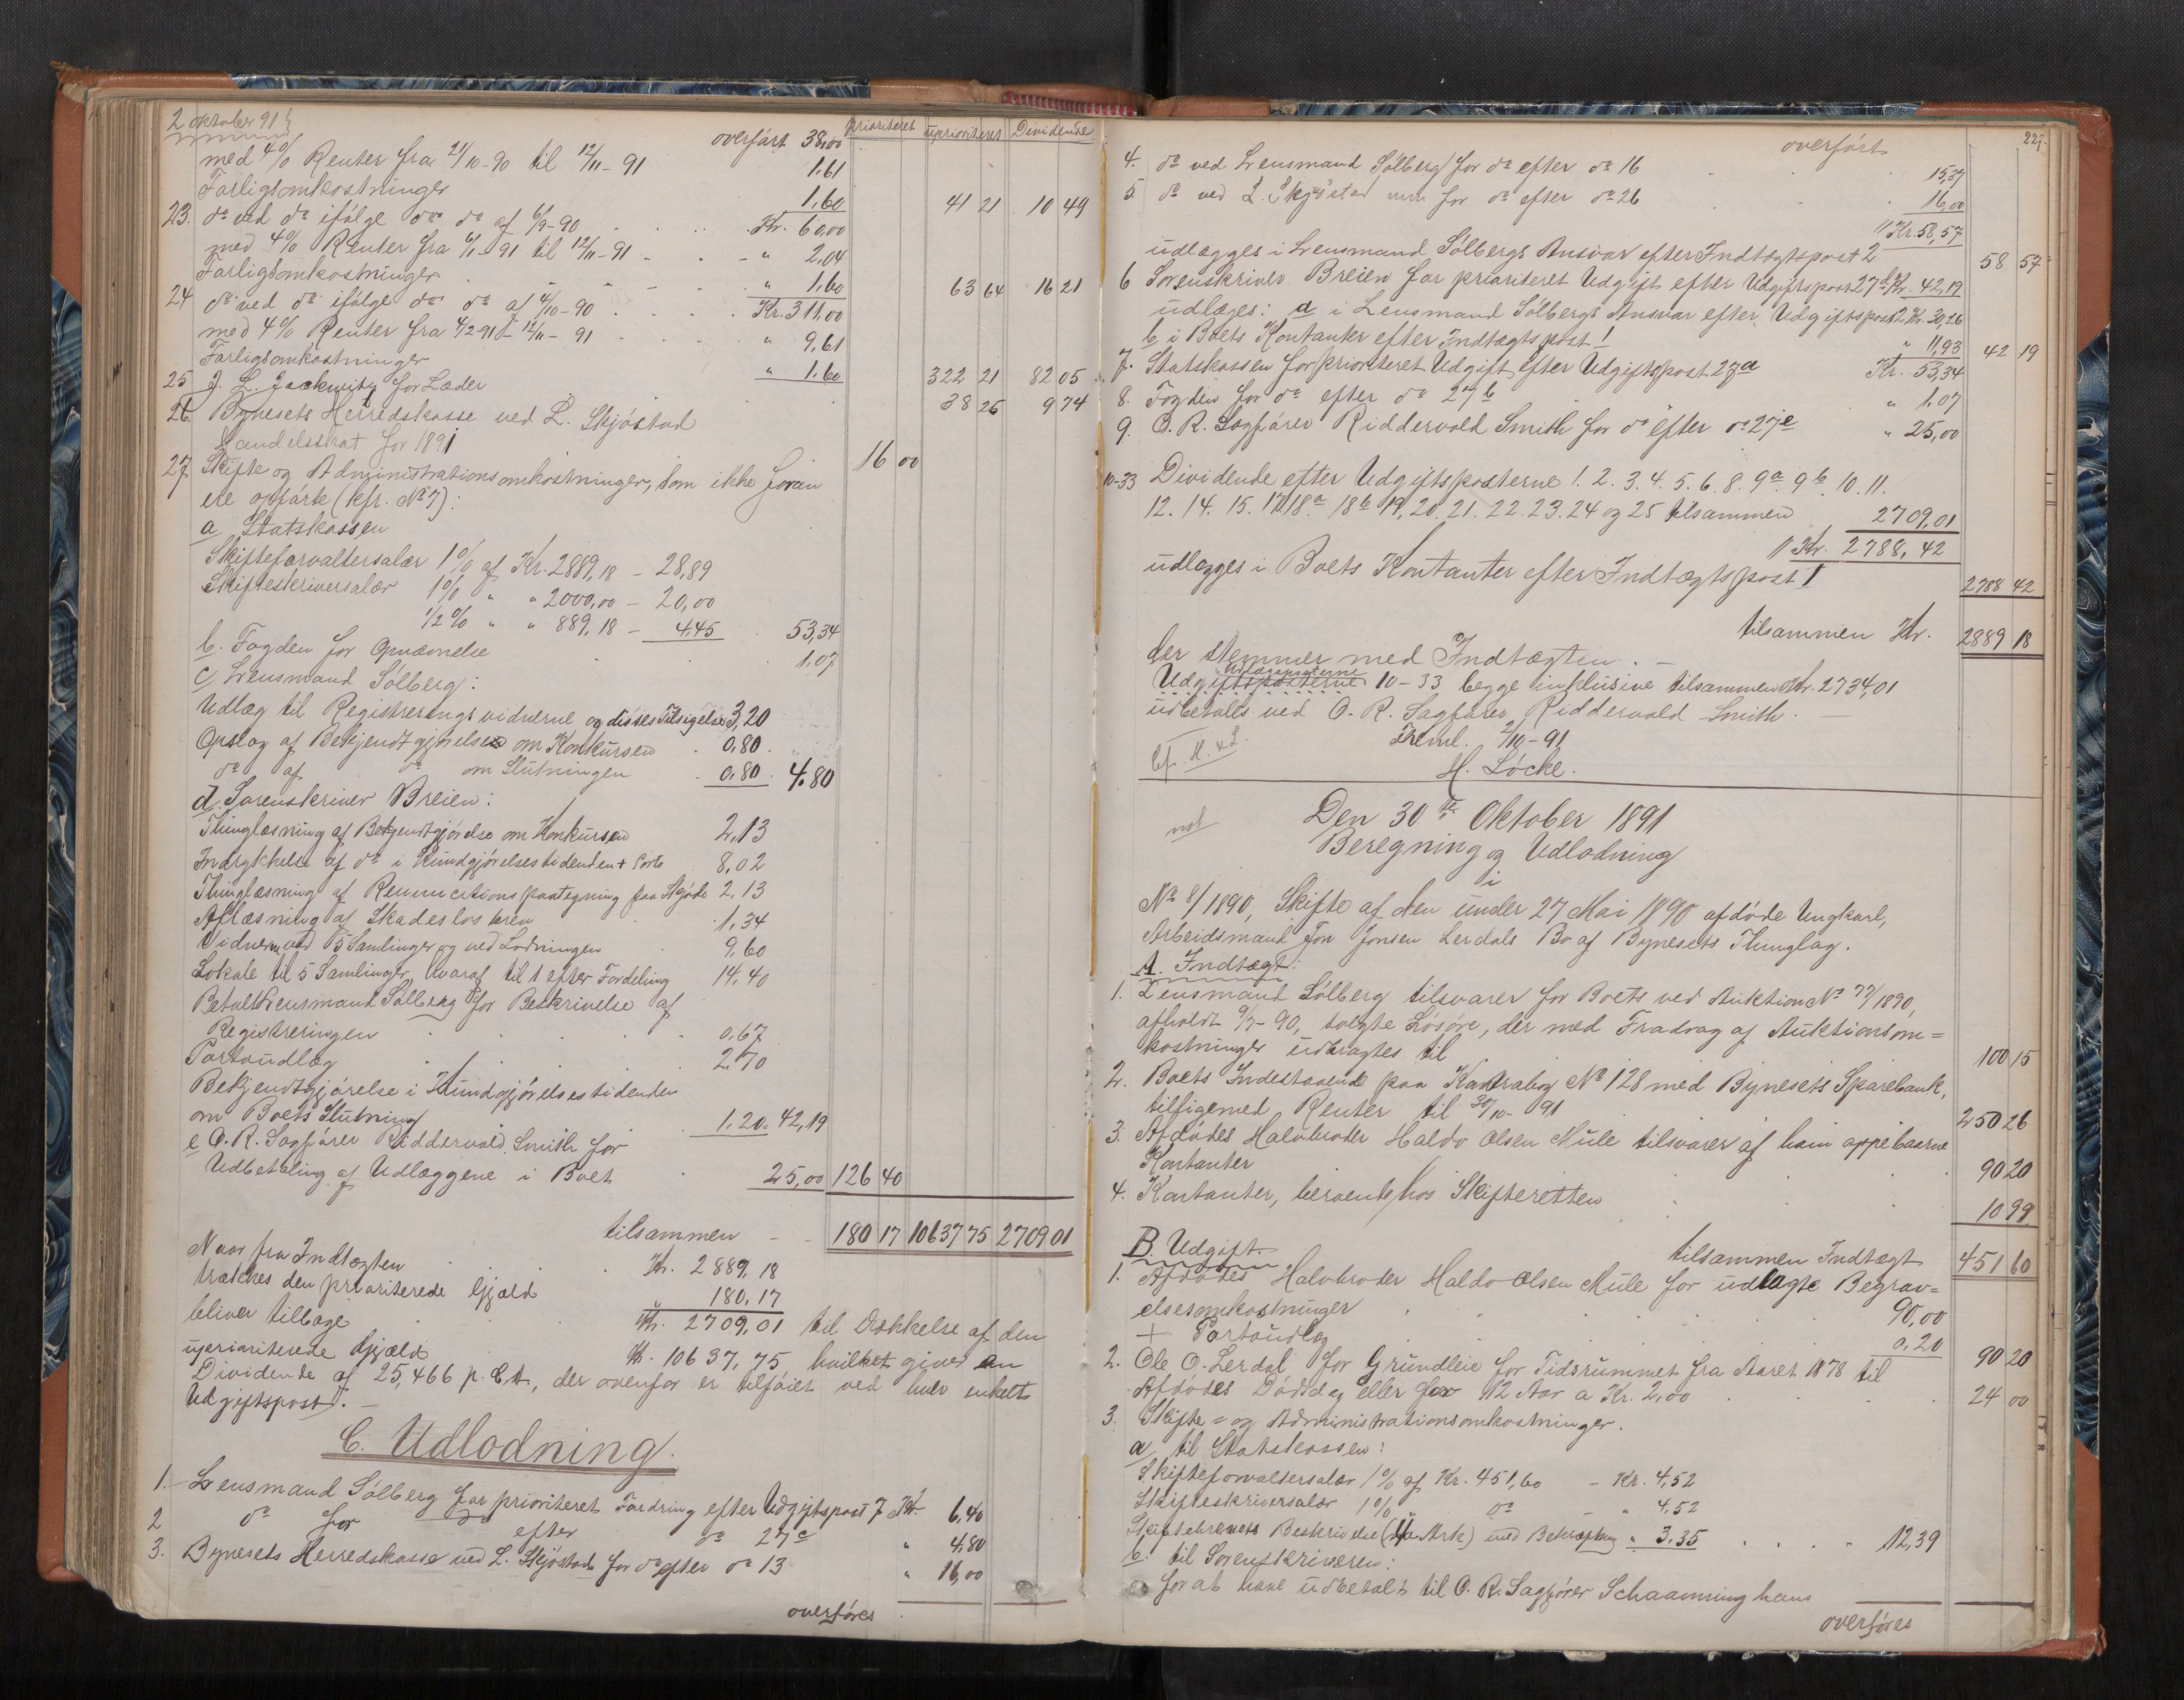 2 oktober 91
prioriteret uprioriteret Dividende
overført 38,00
med 4% Renter fra 21/10-90 til 12/11-91 1,61
Forligsomkostninger 1,60 41 21 10 49
23. do ved do ifølge do do af 6/9-90 Kr. 60,00
med 4% Renter fra 6/1-91 til 12/11-91 " 2,04
Forligsomkostninger " 1,60 63 64 16 21
24 do ved do ifølge do do af 4/10-90 Kr. 311,00
med 4% Renter fra 4/2-91 - 12/11-91 " 9,61
Forligsomkostninger " 1,60 322 21 82 05
25 J. L. Jackwitz for Læder 38 26 9 74
26. Bynesets Herredskasse ved L. Skjøstad
Handelsskat for 1891 16 00
27. Skifte og Administrationsomkostninger, som ikke foran
ere opførte (kfr. No 7):
a Statskassen
Skifteforvaltersalær 1% af Kr. 2889,18 - 28,89
Skifteskriversalær 1% " " 2000,00 - 20,00
1/2% " " 889,18 - 4,45 53,34
b. Fogden for Opnævnelse 1,07
c, Lensmand Sølberg:
Udlæg til Registreringsvidnerne og disses Tilsigelse 3,20
Opslag af Bekjendtgjørelsen om Konkursen 0,80
do af do om Slutningen 0,80 4,80
d. Sorenskriver Breien:
Thinglæsning af Bekjendtgjørelse om Konkursen 2,13
Indrykkelse af do i Kundgjørelsestidenden + Porto 8,02
Thinglæsning af Renunciationspaategning paa Skjøde 2,13
Aflæsning af Skadesløsbrev 1,34
Vidnerne ved 5 Samlinger og ved Lodningen 9,60
Lokale til 5 Samlinger, hvoraf til 1 efter Fordeling 14,40
Betalt Lensmand Sølberg for Beskrivelse af
Registreringen 0,67
Portoudlæg 2,70
Bekjendtgjørelse i Kundgjørelsestidenden
om Boets Slutning 1,20 42,19
e O. R. Sagfører Riddervold Smith for
Udbetaling af Udlæggene i Boet 25,00 126 40
tilsammen 180 17 10637 75 2709 01
Naar fra Indtægten Kr. 2889,18
trækkes den prioriterede Gjæld " 180,17
bliver tilbage Kr. 2709,01 til Dækkelse af den
uprioriterede Gjæld Kr. 10637,75, hvilket giver en
Dividende af 25,466 p. Ct., der ovenfor er tilføiet ved hver enkelt
Udgiftspost. -
C. Udlodning.
1. Lensmand Sølberg for prioriteret Fordring efter Udgiftspost 7 Kr. 6,40
2 do for efter do 27c " 4,80
3. Bynesets Herredskasse ved L. Skjøstad for do efter do 13 " 16,00
overføres
227.
overført
4. do ved Lensmand Sølberg for do efter do 16 15,37
5 do ved L. Skjøstad for do efter do 26 16,00
Kr. 58,57
udlægges i Lensmand Sølbergs Ansvar efter Indtægtspost 2 58 57
6 Sorenskriver Breien for prioriteret Udgift efter Udgiftspost 27d Kr. 42,19
udlæges: a i Lensmand Sølbergs Ansvar efter Udgiftspost 2 Kr. 30,26
b i Boets Kontanter efter Indtægtspost 1 " 11,93 42 19
7. Statskassen for prioriteret Udgift efter Udgiftspost 27a Kr. 53,34
8. Fogden for do efter do 27b " 1,07
9. O. R. Sagfører Riddervold Smith for do efter do 27e " 25,00
10-33 Dividende efter Udgiftsposterne 1. 2. 3. 4. 5. 6. 8. 9a. 9b. 10. 11.
12. 14. 15. 17. 18a 18b 19. 20. 21. 22. 23. 24 og 25 tilsammen 2709,01
Kr. 2788,42
udlægges i Boets Kontanter efter Indtægtspost 1 2788 42
tilsammen Kr. 2889 18
der stemmer med Indtægten. -
Udlægsposterne
Udgiftsposterne 10-33 begge inklusive tilsammen Kr. 2734,01
udbetales ved O. R. Sagfører Riddervold Smith. -
Treml. 2/10-91
H. Løcke.
Den 30te Oktober 1891
Beregning og Udlodning
i
No 8/1890, Skifte af den under 27 Mai 1890 afdøde Ungkarl,
Arbeidsmand Jon Jonsen Lerdals Bo af Bynesets Thinglag.
A. Indtægt:
1. Lensmand Sølberg tilsvarer for Boets ved Auktion No 77/1890,
afholdt 9/7-90, solgte Løsøre, der med Fradrag af Auktionsom=
kostninger udbragtes til 100 15
2. Boets Indestaaende paa Kontrabog No 128 med Bynesets Sparebank,
tilligemed Renter til 30/10-91 250 26
3. Afdødes Halvbroder Haldo Olsen Mule tilsvarer af ham oppebaarne
Kontanter 90 20
4. Kontanter, beroende hos Skifteretten 10 99
tilsammen Indtægt 451 60
B. Udgift.
1. Afdødes Halvbroder Haldo Olsen Mule for udlagte Begrav=
elsesomkostninger 90,00
+ Portoudlæg 0,20 90 20
2. Ole O. Lerdal for Grundleie for Tidsrummet fra Aaret 1878 til
Afdødes Dødsdag eller for 12 Aar a Kr. 2,00 24 00
3. Skifte= og Administrationsomkostninger.
a, til Statskassen:
Skifteforvaltersalær 1% af Kr. 451,60 - Kr. 4,52
Skifteskriversalær 1% do - " 4,52
Skiftebrevets Beskrivelse (4 Ark) med Bekræftelse " 3,35 " 12,39
b. til Sorenskriveren:
for at have udbetalt til O. R. Sagfører Schaanning hans
overføres